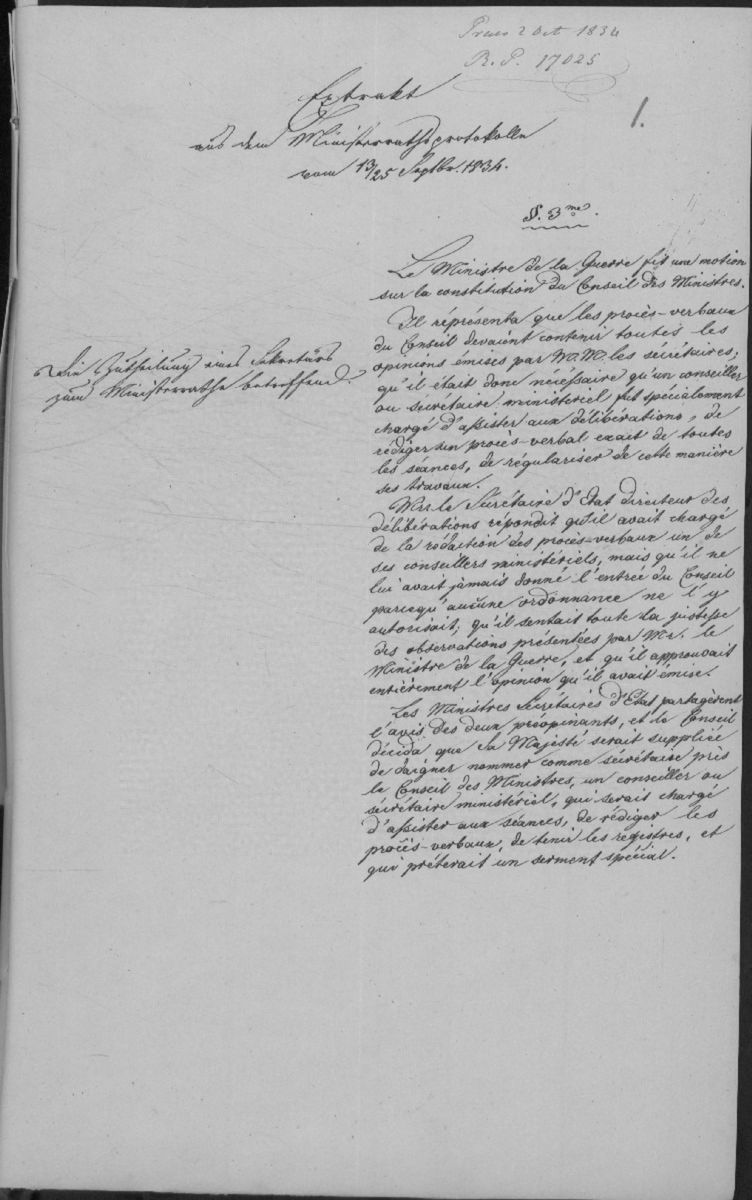 Praes 2 Oct 1834
R. P. 17025
1.
Extrakt
aus dem Ministerrathsprotokolle
vom 13/25 Septbr. 1834.
§. 3me.
Die Zutheilung eines Sekretärs
zum Ministerrathe betreffend.
Le Ministre de la Guerre fit une motion
sur la constitution du Conseil des Ministres.
Il réprésenta que les procès-verbaux
du Conseil devaient contenir toutes les
opinions émises par M.M. les sécrétaires;
qu'il était donc nécéssaire qu'un conseiller
ou sécrétaire ministériel fut spécialement
chargé d'assister aux délibérations, de
rédiger un procès-verbal exait de toutes
les séances, de régulariser de cette manière
ses travaux.
Mr. le Sécrétaire d'Etat directeur des
délibérations répondit qu'il avait chargé
de la rédaction des procès-verbaux un de
ses conseillers ministériels, mais qu'il ne
lui avait jamais donné l'entrée du Conseil
parcequ'aucune ordonnance ne l'y
autorisait; qu'il sentait toute la justesse
des observations présentées par Mr. le
Ministre de la Guerre, et qu'il approuvait
entièrement l'opinion qu'il avait émise.
Les Ministres Sécrétaires d'Etat partagèrent
l'avis des deux préopinants, et le Conseil
décida que Sa Majesté serait suppliée
de daigner nommer comme sécrétaire près
le Conseil des Ministres, un conseiller ou
sécrétaire ministériel, qui serait chargé
d'assister aux séances, de rédiger les
procès-verbaux, de tenir les registres, et
qui préterait un serment spécial.